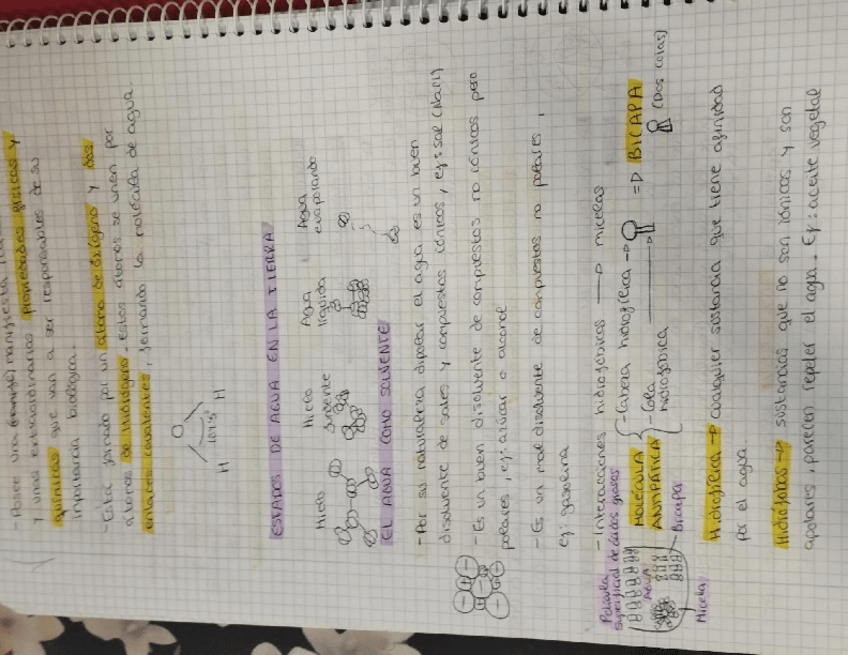 - Posee una manifiesta
y unas extraordinarias propiedades físicas y
químicas que van a ser responsables de su
importancia biológica.
- Está formado por un átomo de oxígeno y dos
átomos de hidrógeno. Estos átomos se unen por
enlaces covalentes, formando la molécula de agua.
O
104'5
H H
ESTADOS DE AGUA EN LA TIERRA
Hielo Hielo Agua líquida Agua evaporando
EL AGUA COMO SOLVENTE
- Por su naturaleza dipolar el agua es un buen
disolvente de sales y compuestos iónicos, ej: sal (NaCl)
- Es un buen disolvente de compuestos no iónicos pero
polares, ej: azúcar o alcohol
- Es un mal disolvente de compuestos no polares,
ej: gasolina
- Interacciones hidrofóbicas → micelas
Película
superficial de ácidos grasos
AGUA
Bicapa
Micela
MOLÉCULA
ANFIPÁTICA
- Cabeza hidrofílica →
- Cola
hidrofóbica
=> BICAPA
(Dos colas)
Hidrofílica → cualquier sustancia que tiene afinidad
por el agua.
Hidrófobas → sustancias que no son iónicos y son
apolares, parecen repeler el agua. Ej: aceite vegetal